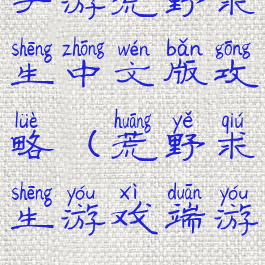 游荒野求
shēng zhōng wén bǎn gōng
生中文版攻
lüè huāng yě qiú
略（荒野求
shēng yóu xì duān yóu
生游戏端游